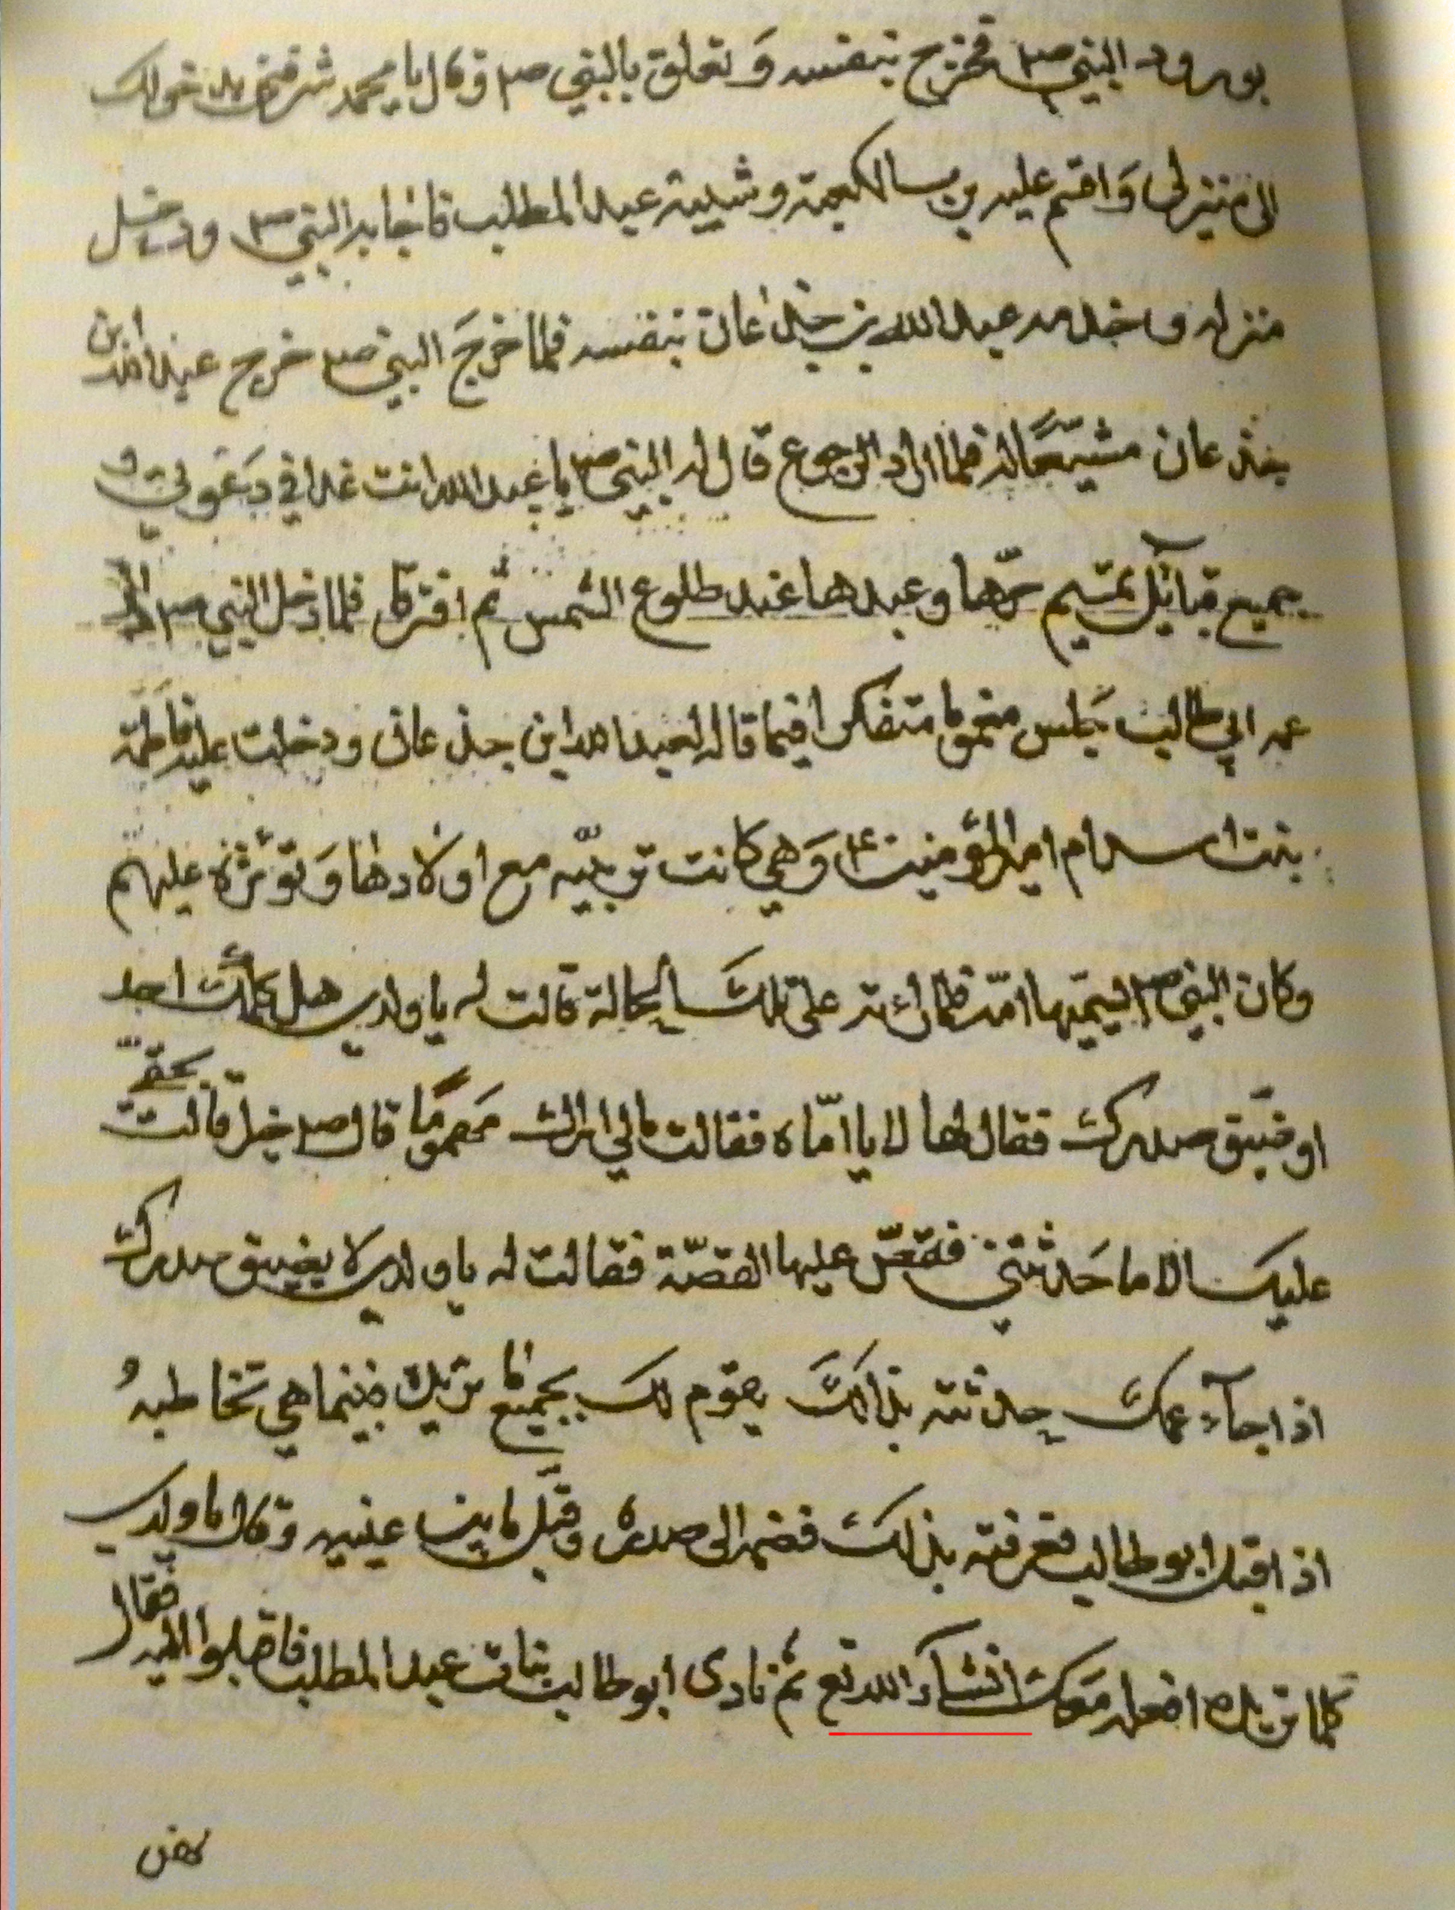 بورود النبي ص فخرج بنفسه وَ تعلق بالنبي ص وقال يا محمد شرفني بدخولك
الى منزلي وَ اقسم عليه برب الكعبة وشيبة عبد المطلب فاجابه النبي ص ودخل
منزله وخدمه عبد الله بن جذعان بنفسه فلما خرجَ النبي ص خرج عبد الله بن
جذعان مشيّعًا له فلما اراد الرجوع قال له النبي ص يا عبد الله انت غدا في دَعوتي و
جميع قبآئل تميم حرّها وعبدها عند طلوع الشمس ثم افترقا فلما دخل النبي ص الى دار
عمه ابي طالب جَلس مغموما متفكرا فيما قاله لعبد الله ابن جذعان ودخلت عليه فاطمة
بنت اسد ام امير المؤمنين ع وَهي كانت تربّيه مع اولادها وَ تؤثره عليهم
وكان النبي ص يسميها امّه فلما راته على تلكَ الحالة قالت له يا ولدي هل كلمك احد
او ضيّق صدرك فقال لها لا يا امّاه فقالت مالي اراك مَهمومًا قال ص خير قالت بحقي
عليك الا ما حَدثتني فقصّ عليها القصّة فقالت له يا ولدي لا يضيق صدرك
اذا جآء عمك حدثته بذالكَ يقوم لك بجميع ما تريد فبينما هي تخاطبهُ
اذ اقبل ابو طالب فعرفته بذلك فضمه الى صدره وقبَّل ما بين عينيه وقال يا ولدي
كلما تريده افعله مَعك انشآء الله تع ثم نادى ابو طالب بنات عبد المطلب فاقبلوا اليه فقال
لهن